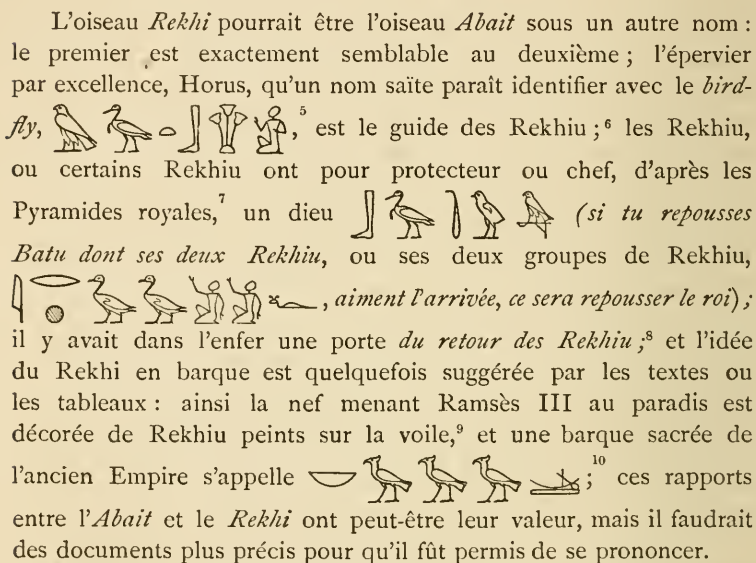 L'oiseau Rekhi pourrait être l'oiseau Abait sous un autre nom :
le premier est exactement semblable au deuxième ; l'épervier
par excellence, Horus, qu'un nom saïte paraît identifier avec le bird-
fly, ,⁵ est le guide des Rekhiu ;⁶ les Rekhiu,
ou certains Rekhiu ont pour protecteur ou chef, d'après les
Pyramides royales,⁷ un dieu (si tu repousses
Batu dont ses deux Rekhiu, ou ses deux groupes de Rekhiu,
, aiment l'arrivée, ce sera repousser le roi) ;
il y avait dans l'enfer une porte du retour des Rekhiu ;⁸ et l'idée
du Rekhi en barque est quelquefois suggérée par les textes ou
les tableaux : ainsi la nef menant Ramsès III au paradis est
décorée de Rekhiu peints sur la voile,⁹ et une barque sacrée de
l'ancien Empire s'appelle ;¹⁰ ces rapports
entre l'Abait et le Rekhi ont peut-être leur valeur, mais il faudrait
des documents plus précis pour qu'il fût permis de se prononcer.